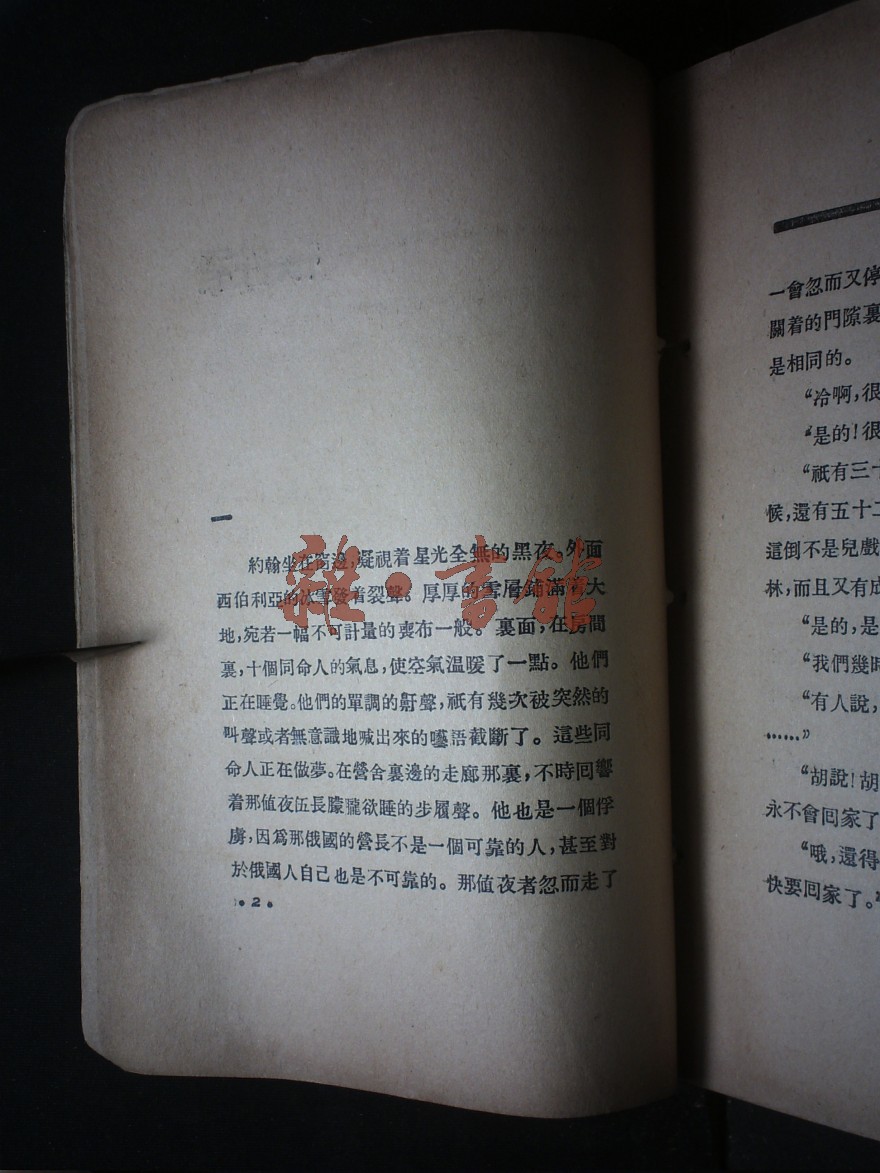 一
約翰坐在窗邊,凝視着星光全無的黑夜。外面
西伯利亞的冰雪發着裂聲。厚厚的雪層鋪滿着大
地,宛若一幅不可計量的喪布一般。裏面,在房間
裏,十個同命人的氣息,使空氣溫暖了一點。他們
正在睡覺。他們的單調的鼾聲,祇有幾次被突然的
叫聲或者無意識地喊出來的囈語截斷了。這些同
命人正在做夢。在營舍裏邊的走廊那裏,不時囘響
着那值夜伍長朦朧欲睡的步履聲。他也是一個俘
虜,因爲那俄國的營長不是一個可靠的人,甚至對
於俄國人自己也是不可靠的。那値夜者忽而走了
•2•
一會忽而又停
關着的門隙裏
是相同的。
“冷啊,很
“是的!很
“祇有三十
候,還有五十二
這倒不是兒戲
林,而且又有成
“是的,是
“我們幾時
“有人說,
……”
“胡說!胡
永不會囘家了
“哦,還得
快要囘家了。”
雜·書館